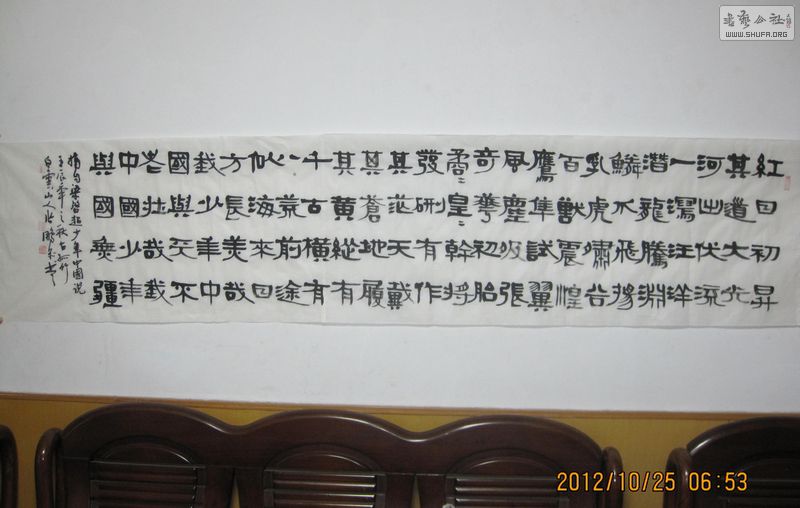 紅日初昇
其道大光
河出伏流
一瀉汪洋
潛龍騰淵
鱗爪飛揚
乳虎嘯谷
百獸震惶
鷹隼試翼
風塵吸張
奇華初胎
矞〻皇〻幹將
發硎有作
其茫天戴
其蒼地履
其黃縱有
千古橫有
八荒前途
似海來日
方長美哉
我少年中
國與天不
老壯哉我
中國少年
與國無疆
摘句梁啓超少年中國說
壬辰年之秋古
白雲山人
書藝公社
WWW.SHUFA.ORG
2012/10/25 06:53